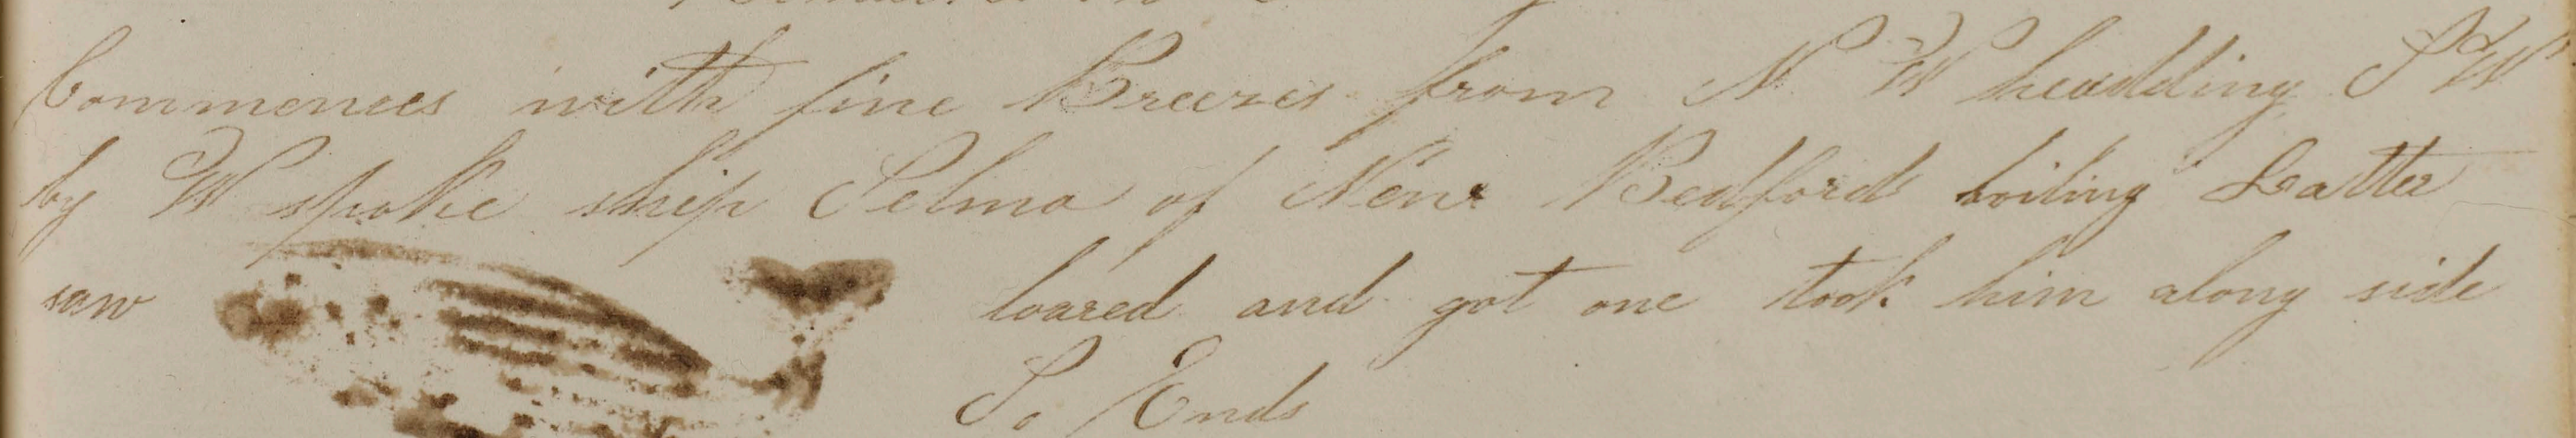 Commences with fine Breezes from N W headding S W
by W spoke ship Selma of New Bedford boiling Latter
saw loared and got one took him along side
So Ends